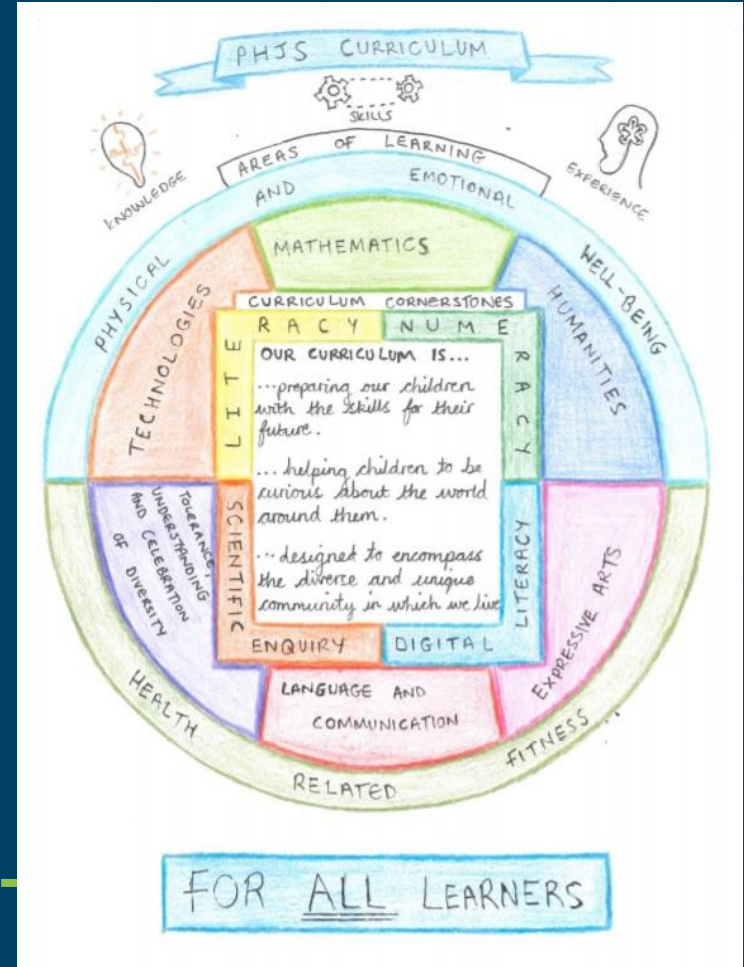 PHJS CURRICULUM
SKILLS
KNOWLEDGE
EXPERIENCE
AREAS OF LEARNING
PHYSICAL AND EMOTIONAL WELL-BEING
MATHEMATICS
TECHNOLOGIES
HUMANITIES
CURRICULUM CORNERSTONES
LITERACY
NUMERACY
OUR CURRICULUM IS...
...preparing our children
with the skills for their
future.
... helping children to be
curious about the world
around them.
... designed to encompass
the diverse and unique
community in which we live
SCIENTIFIC ENQUIRY
DIGITAL LITERACY
TOLERANCE,
UNDERSTANDING
AND CELEBRATION
OF DIVERSITY
EXPRESSIVE ARTS
LANGUAGE AND
COMMUNICATION
HEALTH RELATED FITNESS..
FOR ALL LEARNERS